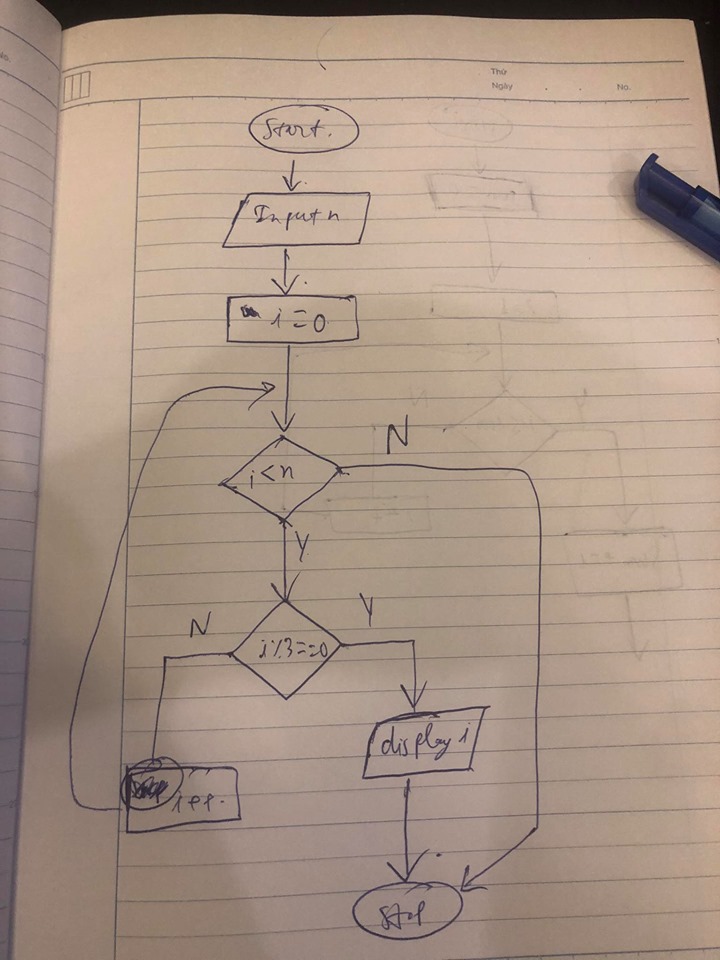 No.
Thứ
Ngày
No.
Start.
Input n
i = 0
i < n
N
Y
i%3==0
N
Y
display i
i++.
stop